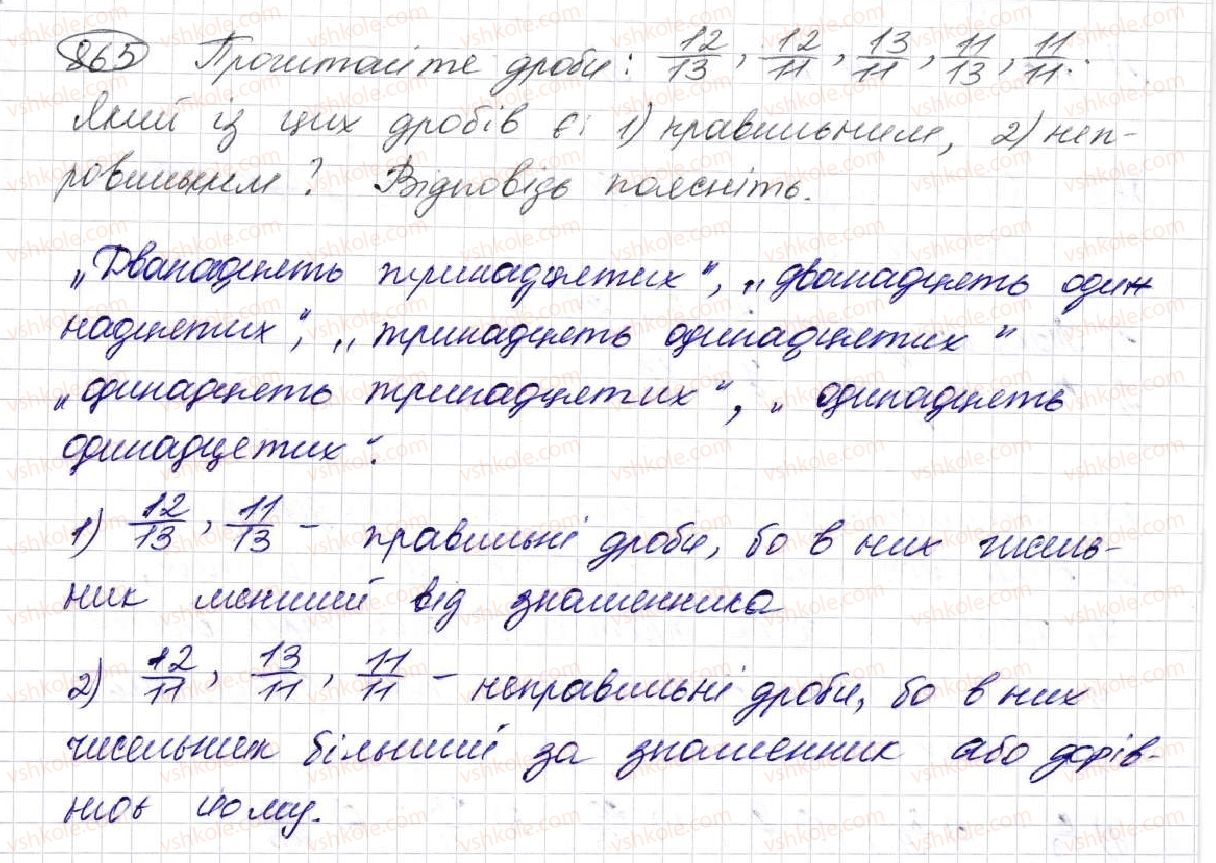 865 Прочитайте дроби: 12/13, 12/11, 13/11, 11/13, 11/11.
Який із цих дробів є: 1) правильним, 2) неп-
равильним? Відповідь поясніть.
„Дванадцять тринадцятих", „дванадцять один
надцятих", „тринадцять одинадцятих"
„одинадцять тринадцятих", „одинадцять
одинадцетих".
1) 12/13, 11/13 – правильні дроби, бо в них чисель-
ник менший від знаменника
2) 12/11, 13/11, 11/11 – неправильні дроби, бо в них
чисельник більший за знаменник або дорів-
нює йому.
vshkole.com